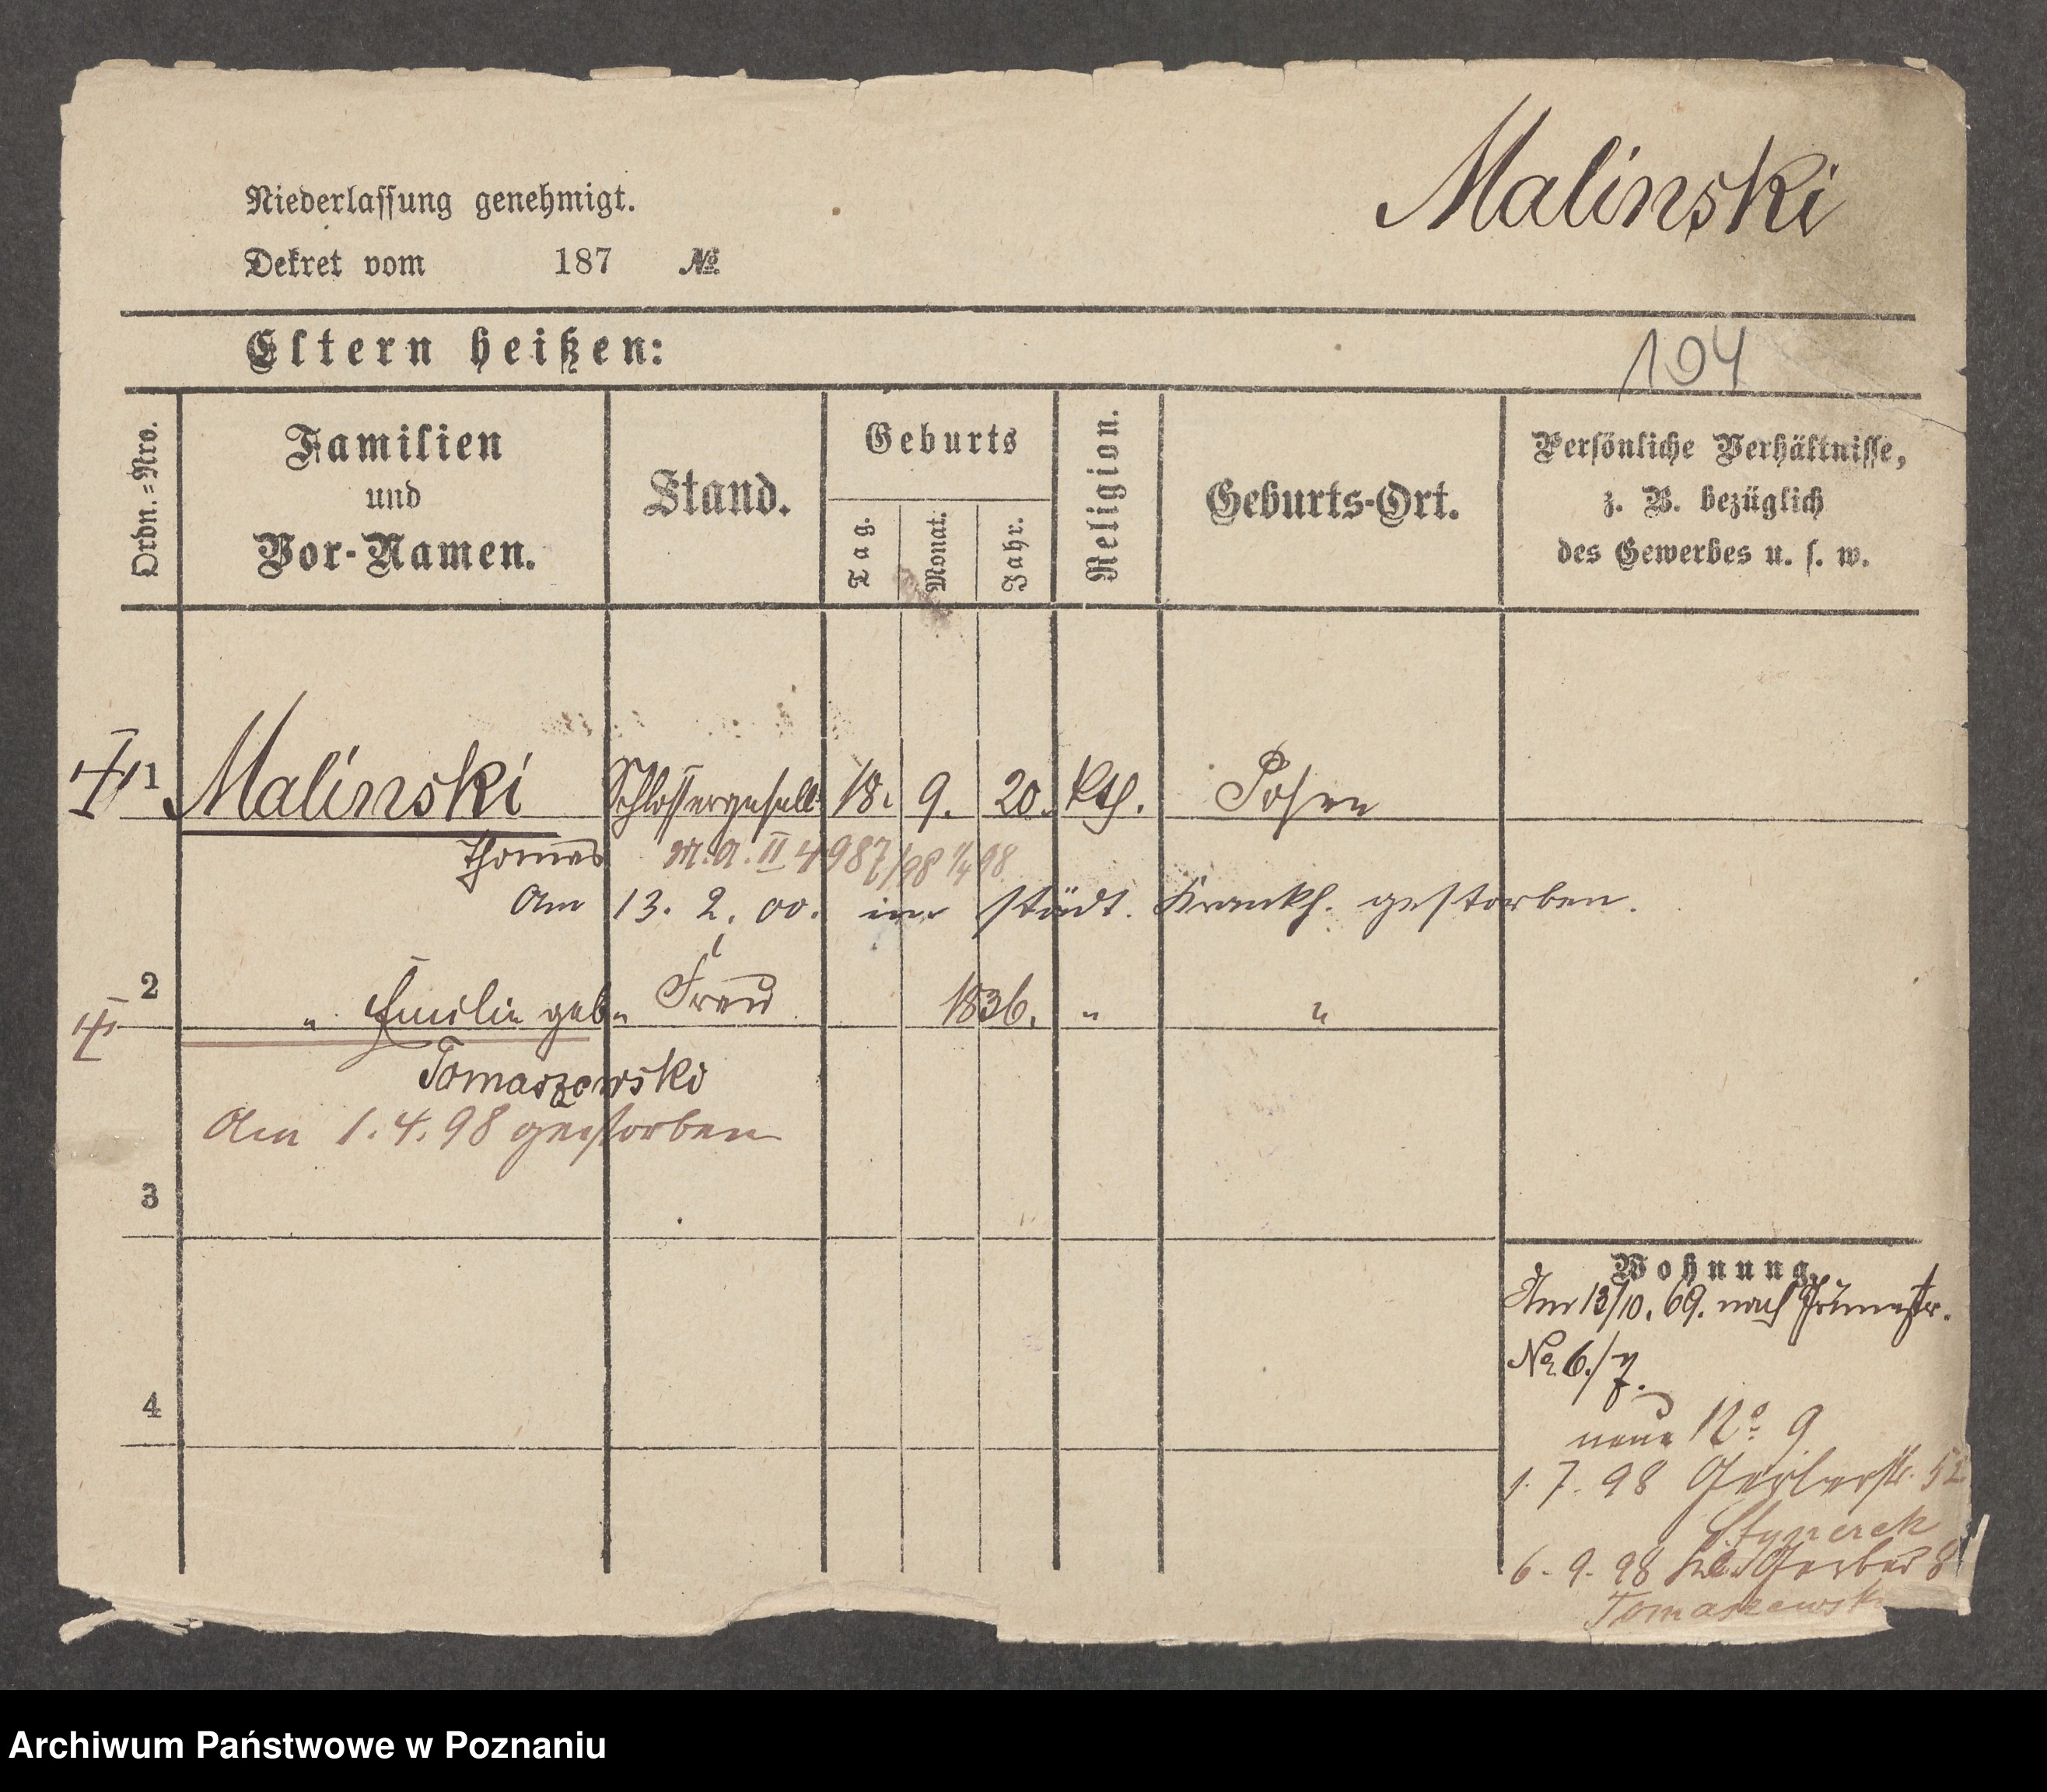 Malinski
Niederlassung genehmigt.
Dekret vom 187 №
Eltern heißen:
104
Ordn.=Nro.
Familien
und
Vor-Namen.
Stand.
Geburts
Tag.
Monat.
Jahr.
Religion.
Geburts-Ort.
Persönliche Verhältnisse,
z. B. bezüglich
des Gewerbes u. s. w.
1 Malinski Schlossergesell 18. 9. 20. kth. Posen
Thomas M.A. II 4987/98
Am 13. 2. 00. im städt. Krankh. gestorben.
2 " Emilie geb. Frau 1836. " "
Tomaszewski
Am 1.4.98 gestorben
3
4
Wohnung.
Am 13/10. 69. nach
No 6./7.
neue No 9
1. 7. 98 Gerberstr. 52
6. 9. 98 Kl. Gerber 8
Tomaszewski
Archiwum Państwowe w Poznaniu